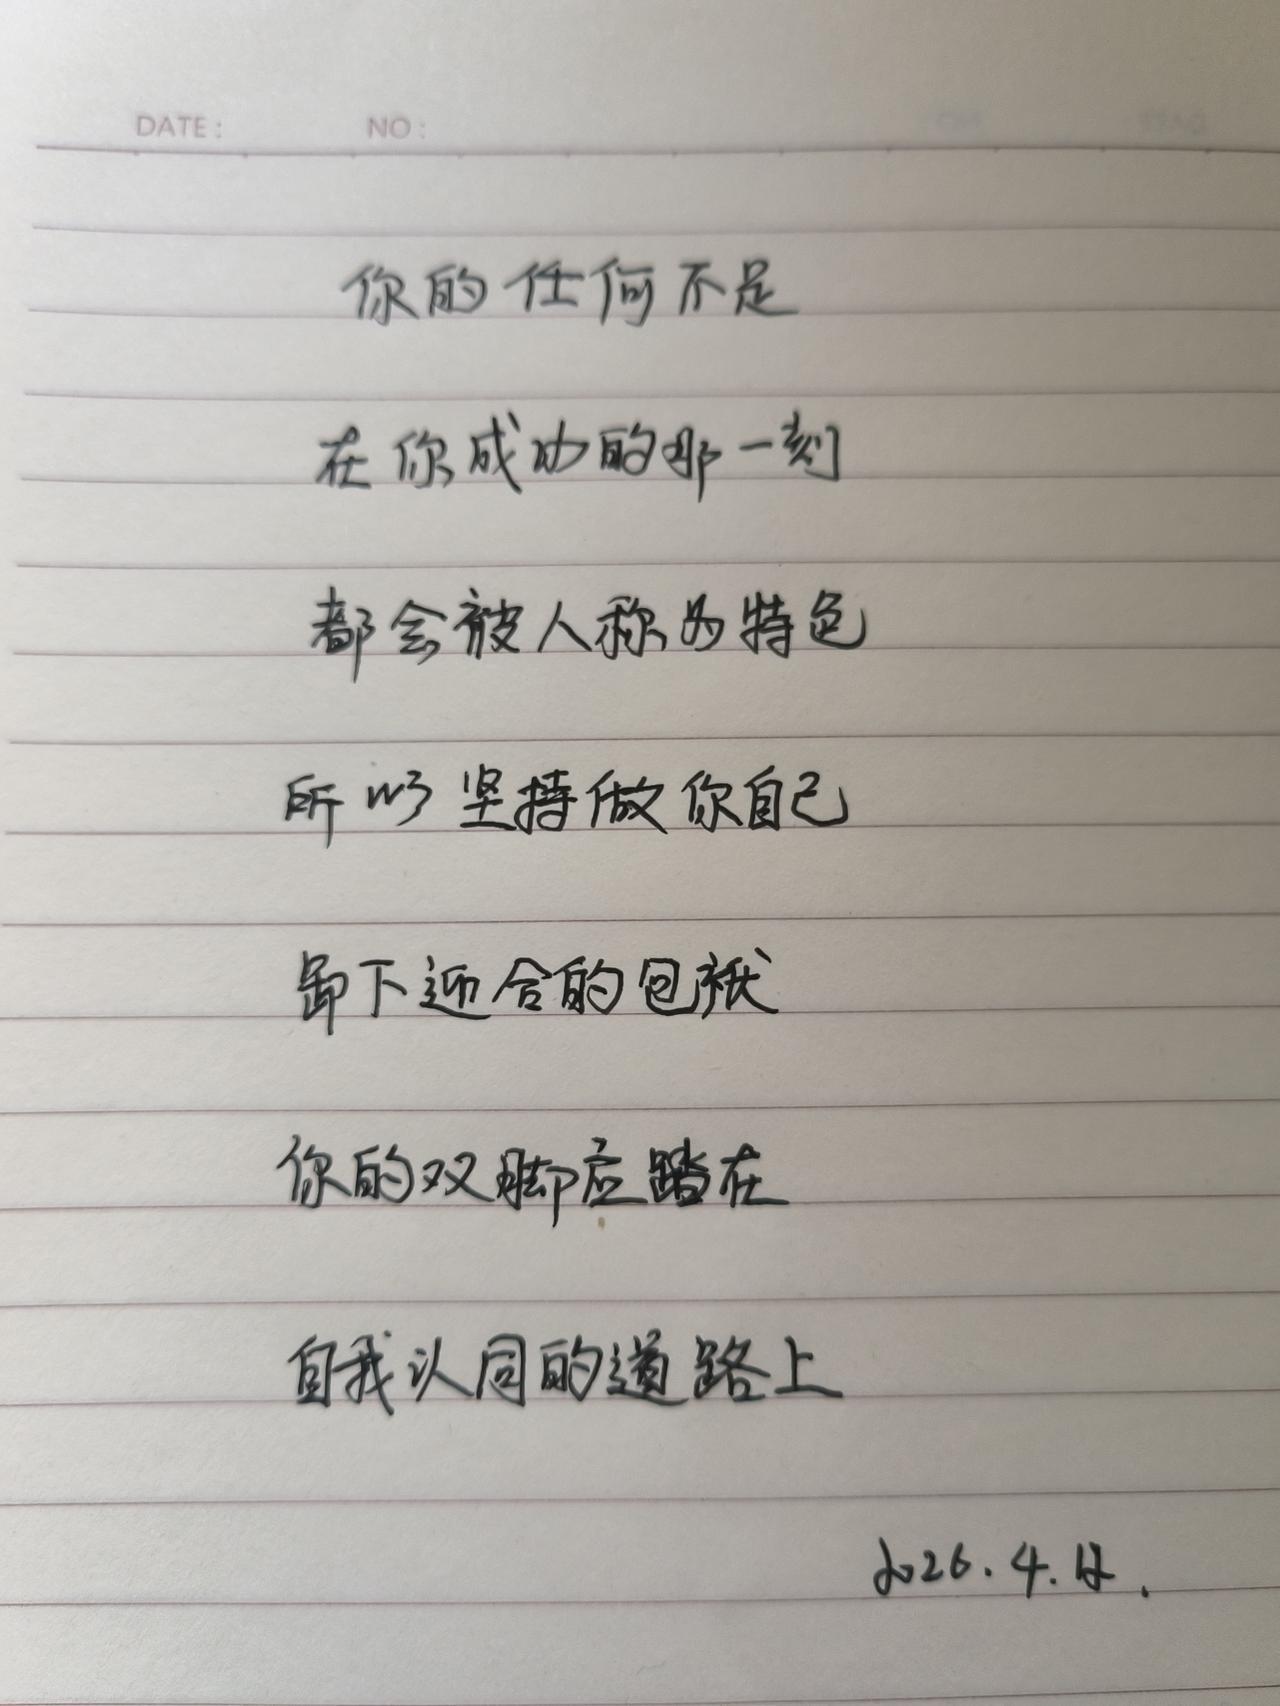 DATE:
NO:
你的任何不足
在你成功的那一刻
都会被人称为特色
所以坚持做你自己
卸下迎合的包袱
你的双脚应踏在
自我认同的道路上
2026.4.